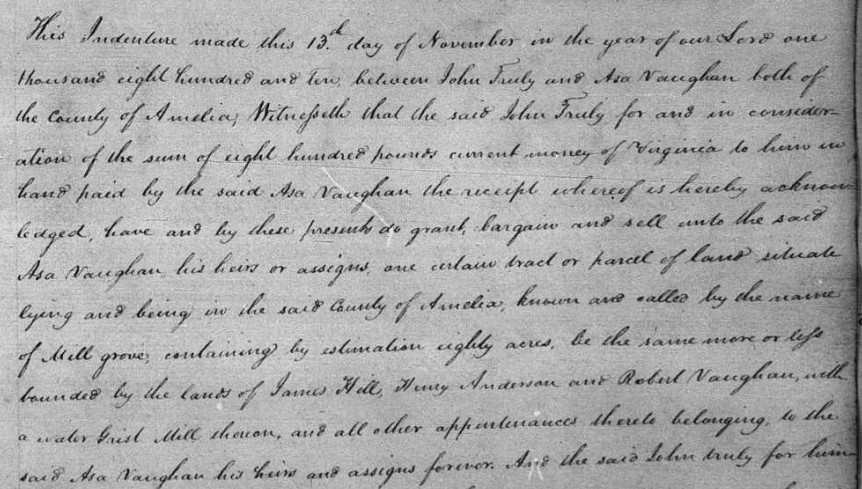 This Indenture made this 13.th day of November in the year of our Lord one
thousand eight hundred and ten, between John Truly and Asa Vaughan both of
the County of Amelia; Witnesseth that the said John Truly for and in consider-
ation of the sum of eight hundred pounds current money of Virginia to him in
hand paid by the said Asa Vaughan the receipt whereof is hereby acknow
ledged, have and by these presents do grant, bargain and sell unto the said
Asa Vaughan his heirs or assigns, one certain tract or parcel of land situate
lying and being in the said County of Amelia, known and called by the name
of Mill grove, containing by estimation eighty acres, be the same more or less
bounded by the lands of James Hill, Henry Anderson and Robert Vaughan, with
a water Grist Mill thereon, and all other appurtenances thereto belonging, to the
said Asa Vaughan his heirs and assigns forever. And the said John truly for him